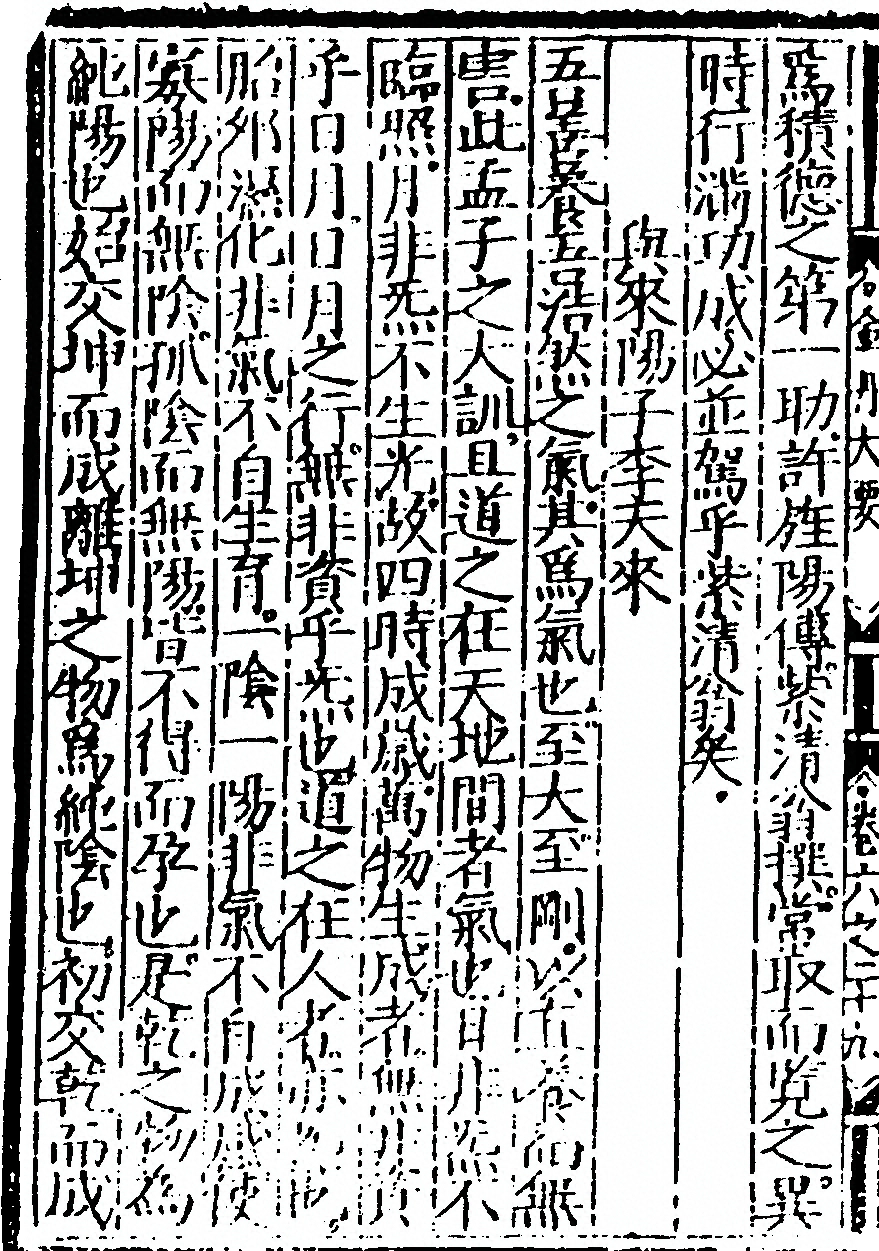 金丹大要 卷六之二十九
爲積德之第一助許旌陽傳紫清翁撰常取而覽之異
時行滿功成必並駕乎紫清翁矣
與來陽子李天來
吾善養吾浩然之氣其爲氣也至大至剛以直養而無
害此孟子之大訓且道之在天地間者氣也日非炁不
臨照月非炁不生光故四時成歲萬物生成者無非資
乎日月日月之行無非資乎炁也道之在人者亦
胎卵濕化非氣不自生育一陰一陽非氣不自成感使
寡陽而無陰孤陰而無陽皆不得而孕也是乾之物爲
純陽也始交坤而成離坤之物爲純陰也初交乾而成